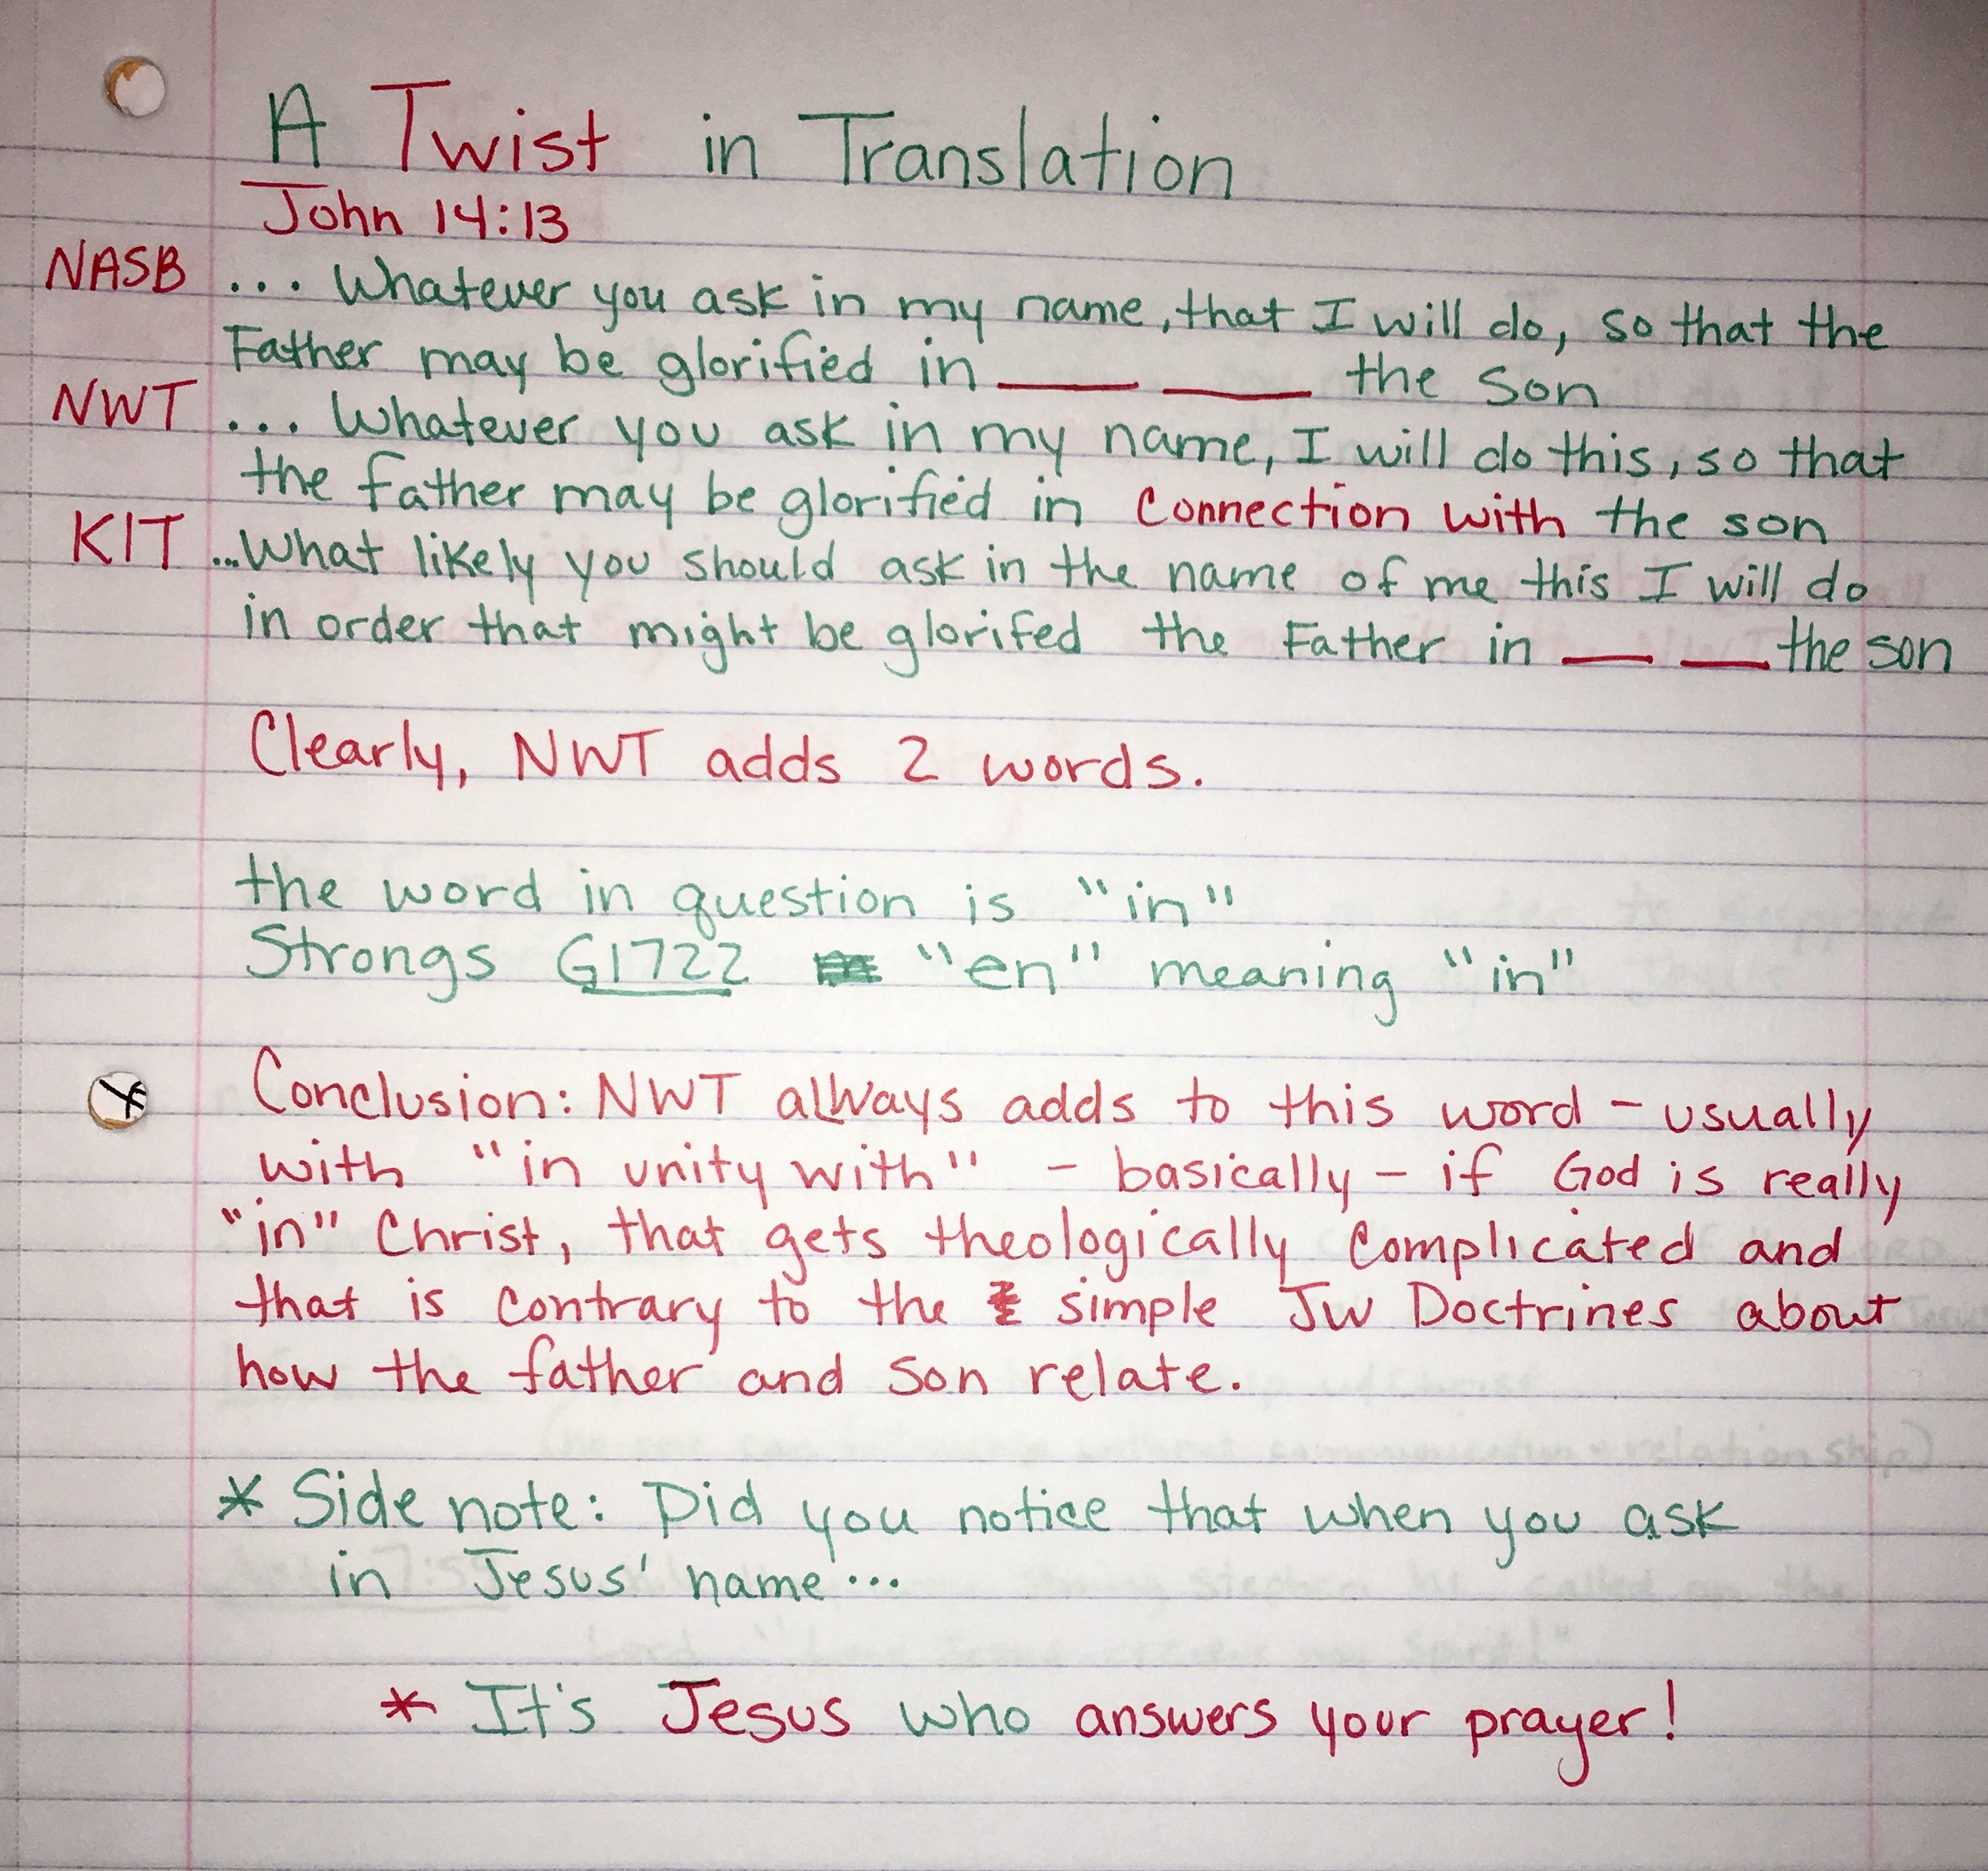 A Twist in Translation
John 14:13
NASB ... Whatever you ask in my name, that I will do, so that the
Father may be glorified in ____ ____ the son
NWT ... Whatever you ask in my name, I will do this, so that
the father may be glorified in Connection with the son
KIT ...What likely you should ask in the name of me this I will do
in order that might be glorifed the Father in ___ ___ the son
Clearly, NWT adds 2 words.
the word in question is "in"
Strongs G1722 "en" meaning "in"
Conclusion: NWT always adds to this word - usually
with "in unity with" - basically - if God is really
"in" Christ, that gets theologically complicated and
that is contrary to the simple JW Doctrines about
how the father and son relate.
* Side note: Did you notice that when you ask
in Jesus' name...
* It's Jesus who answers your prayer!